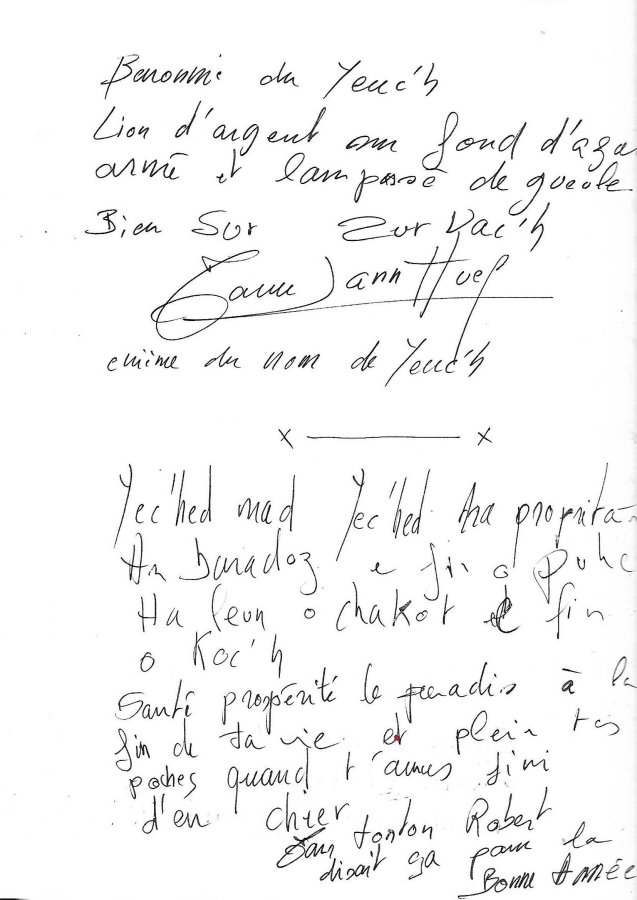 Baronnie du Yeuc'h
Lion d'argent sur fond d'azu
armé et lampassé de gueule
Bien Sur Zur Vac'h
Jann Huel
du nom de Yeuc'h
x ——— x
Yec'hed mad Yec'hed ha prosperita
Ar baradoz e fin o puhe
Ha leun o chakot fin
o Koc'h
Santé prospérité le paradis à la
fin de ta vie et plein tes
poches quand t'auras fini
d'en chier
tonton Robert
disait ça pour la
Bonne Année